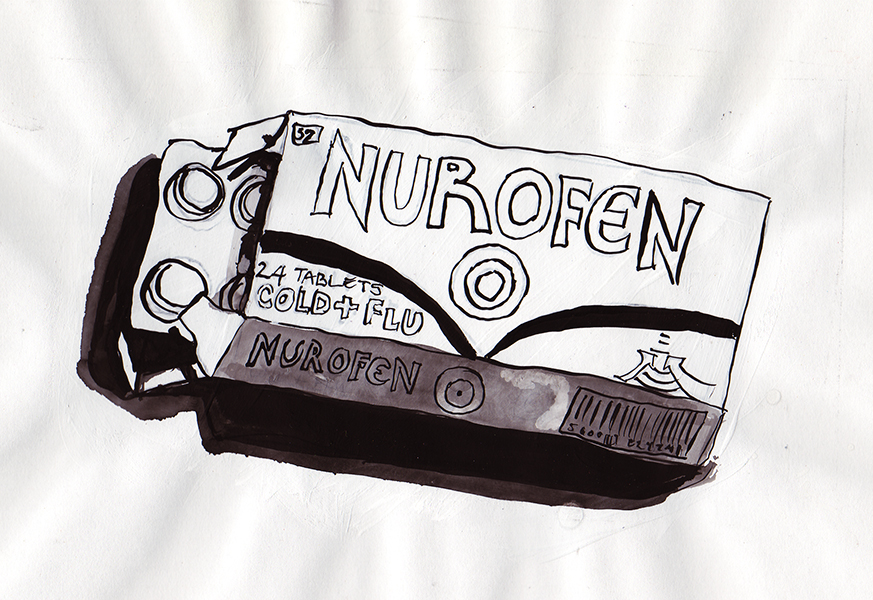 32
NUROFEN
24 TABLETS
COLD + FLU
NUROFEN